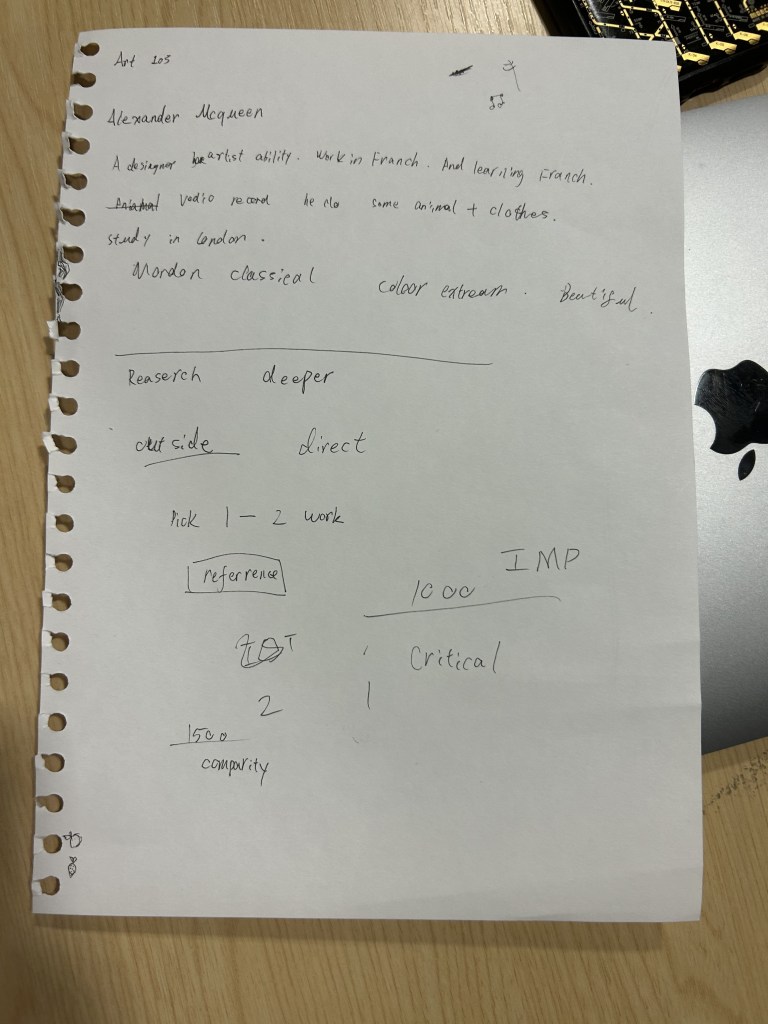 Art 103
Alexander Mcqueen
A desiagner artist ability. Work in Franch. And learning Franch.
Vedio record he do some animal + clothes.
study in London.
Mordon classical colour extream. Beutiful.
Reaserch deeper
out side direct
Pick 1 - 2 work
referrence
IMP
1000
Critical
2 1
1500
comparity